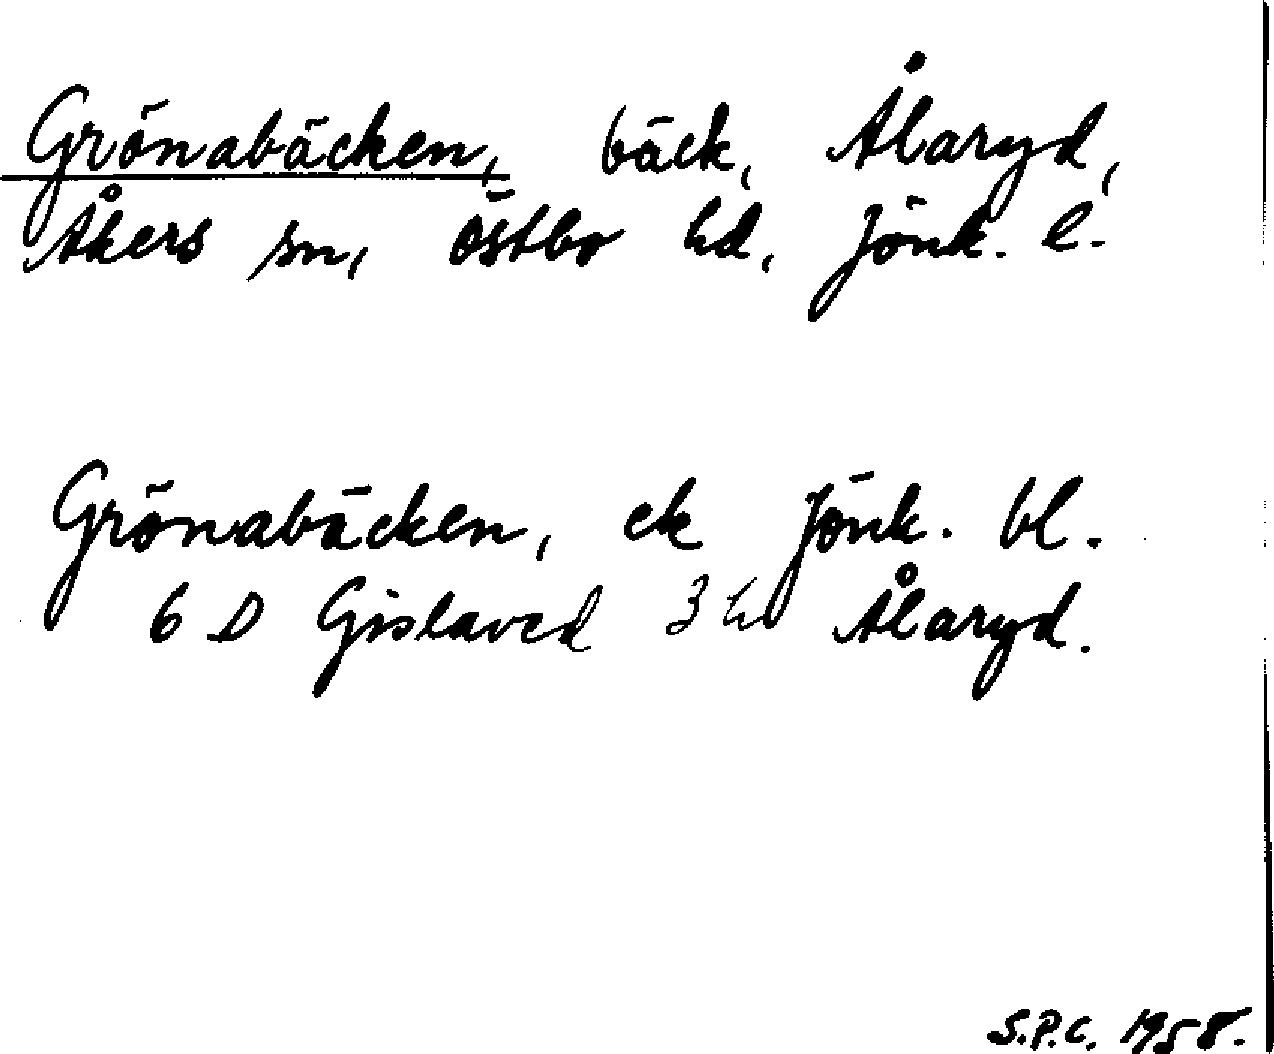 Grönabäcken, bäck, Ålaryd,
Åkers sn, Östbo hd, Jönk. l.
Grönabäcken, ek Jönk. bl.
6 D Gislaved 3 h Ålaryd.
S.P.C. 1958.